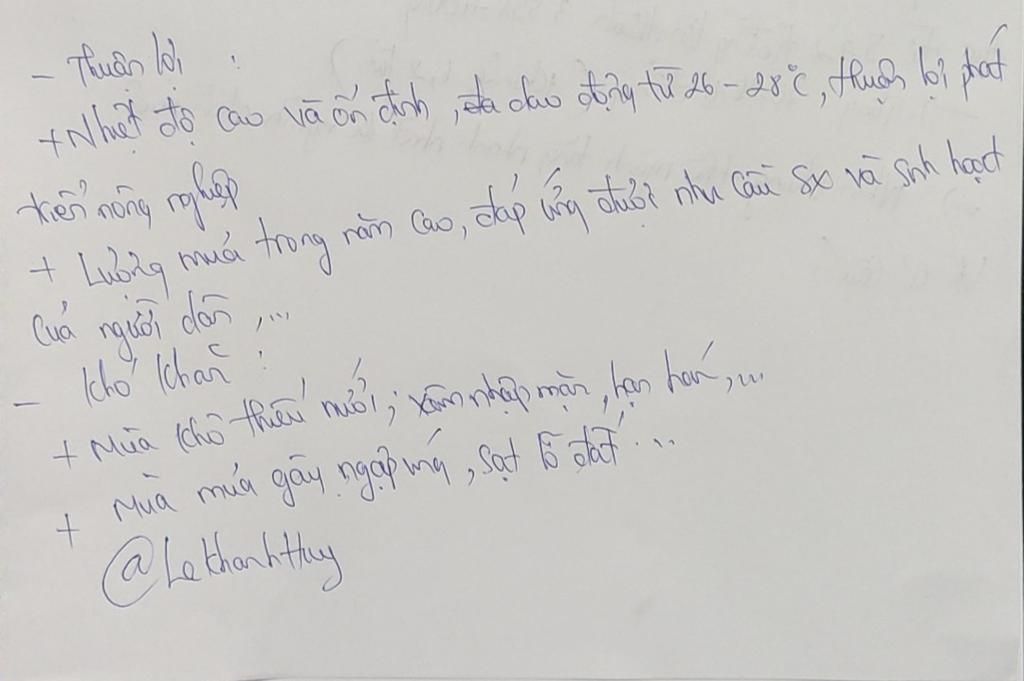 - Thuận lợi :
+ Nhiệt độ cao và ổn định, dao động từ 26 - 28°C, thuận lợi phát
triển nông nghiệp
+ Lượng mưa trong năm cao, đáp ứng được nhu cầu sx và sinh hoạt
của người dân,...
- Khó khăn :
+ Mùa khô thiếu nước, xâm nhập mặn, hạn hán,...
+ Mùa mưa gây ngập úng, sạt lở đất...
@LeKhanhHuy